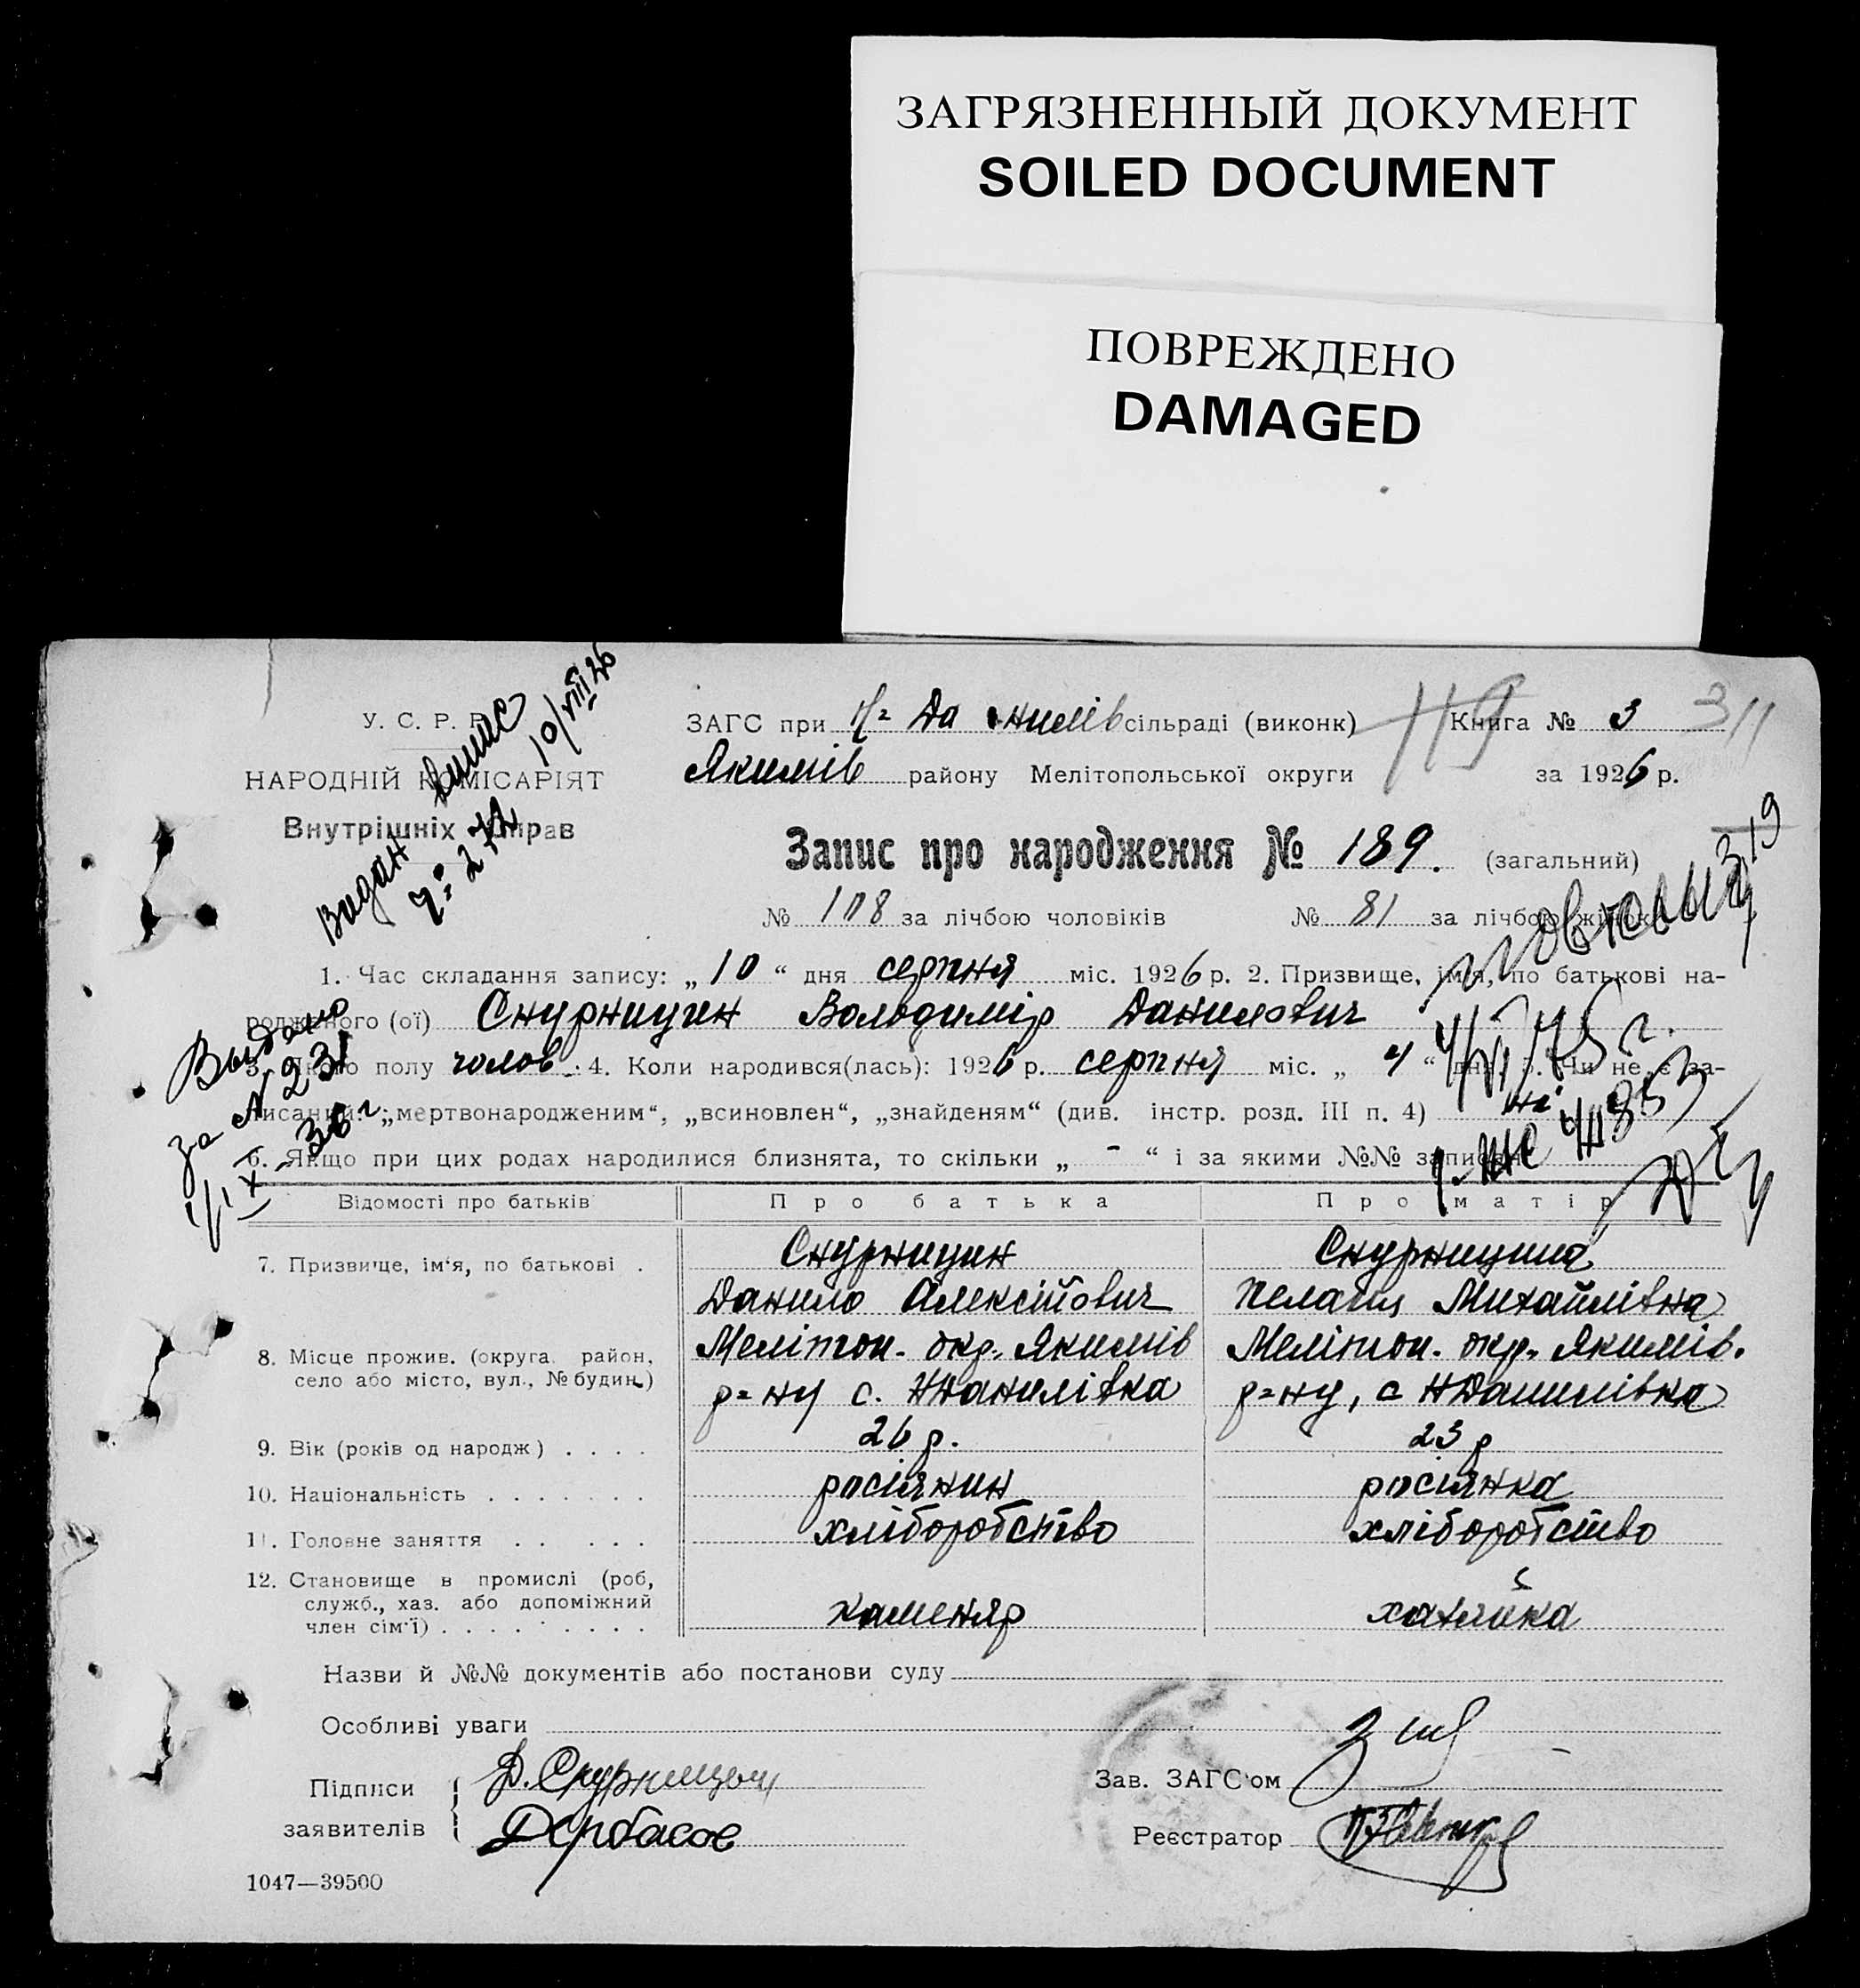 ЗАГРЯЗНЕННЫЙ ДОКУМЕНТ
SOILED DOCUMENT
ПОВРЕЖДЕНО
DAMAGED
У. С. Р. Р.
НАРОДНІЙ КОМІСАРІЯТ
Внутрішніх Справ
Видан
10/VIII 26
Ч: 272
ЗАГС при Н= Да нилів сільраді (виконк) Книга № 3
119
311
Якимів району Мелітопольської округи за 1926 р.
Запис про народження № 189. (загальний)
319
№ 108 за лічбою чоловіків № 81 за лічбою жінок
повторный
1. Час складання запису: „ 10 “ дня серпня міс. 1926 р. 2. Призвище, імя, по батькові на-
родженого (ої) Снурницин Володимір Данилович
Выдано
за № 231
1/IX - 36 г.
3. Якого полу чолов. 4. Коли народився(лась): 1926 р. серпня міс. „ 4 “ дня 5. Чи не є за-
писаний: „мертвонародженим“, „всиновлен“, „знайденям“ (див. інстр. розд. III п. 4) ні
6. Якщо при цих родах народилися близнята, то скільки „ - “ і за якими №№ записані
Відомості про батьків Про батька Про матір
7. Призвище, ім'я, по батькові . Снурницин Снурницина
Данило Алексійович Пелагия Михайлівна
8. Місце прожив. (округа район, село або місто, вул., № будин.) Мелітоп. окр. Якимів Меліноп. окр. Якимів.
р=ну с. ННанилівка р=ну, с НДанилівка
9. Вік (років од народж) . . . . 26 р. 23 р
10. Національність . . . . . . . росіянин росіянка
11. Головне заняття . . . . . хліборобство хліборобство
12. Становище в промислі (роб, служб., хаз. або допоміжний член сім'ї) . . . . . . . . . каменяр хатяйка
Назви й №№ документів або постанови суду
Особливі уваги
Підписи заявителів
Д. Снурницын
Дербасов
Зав. ЗАГС'ом
Реєстратор
1047—39500